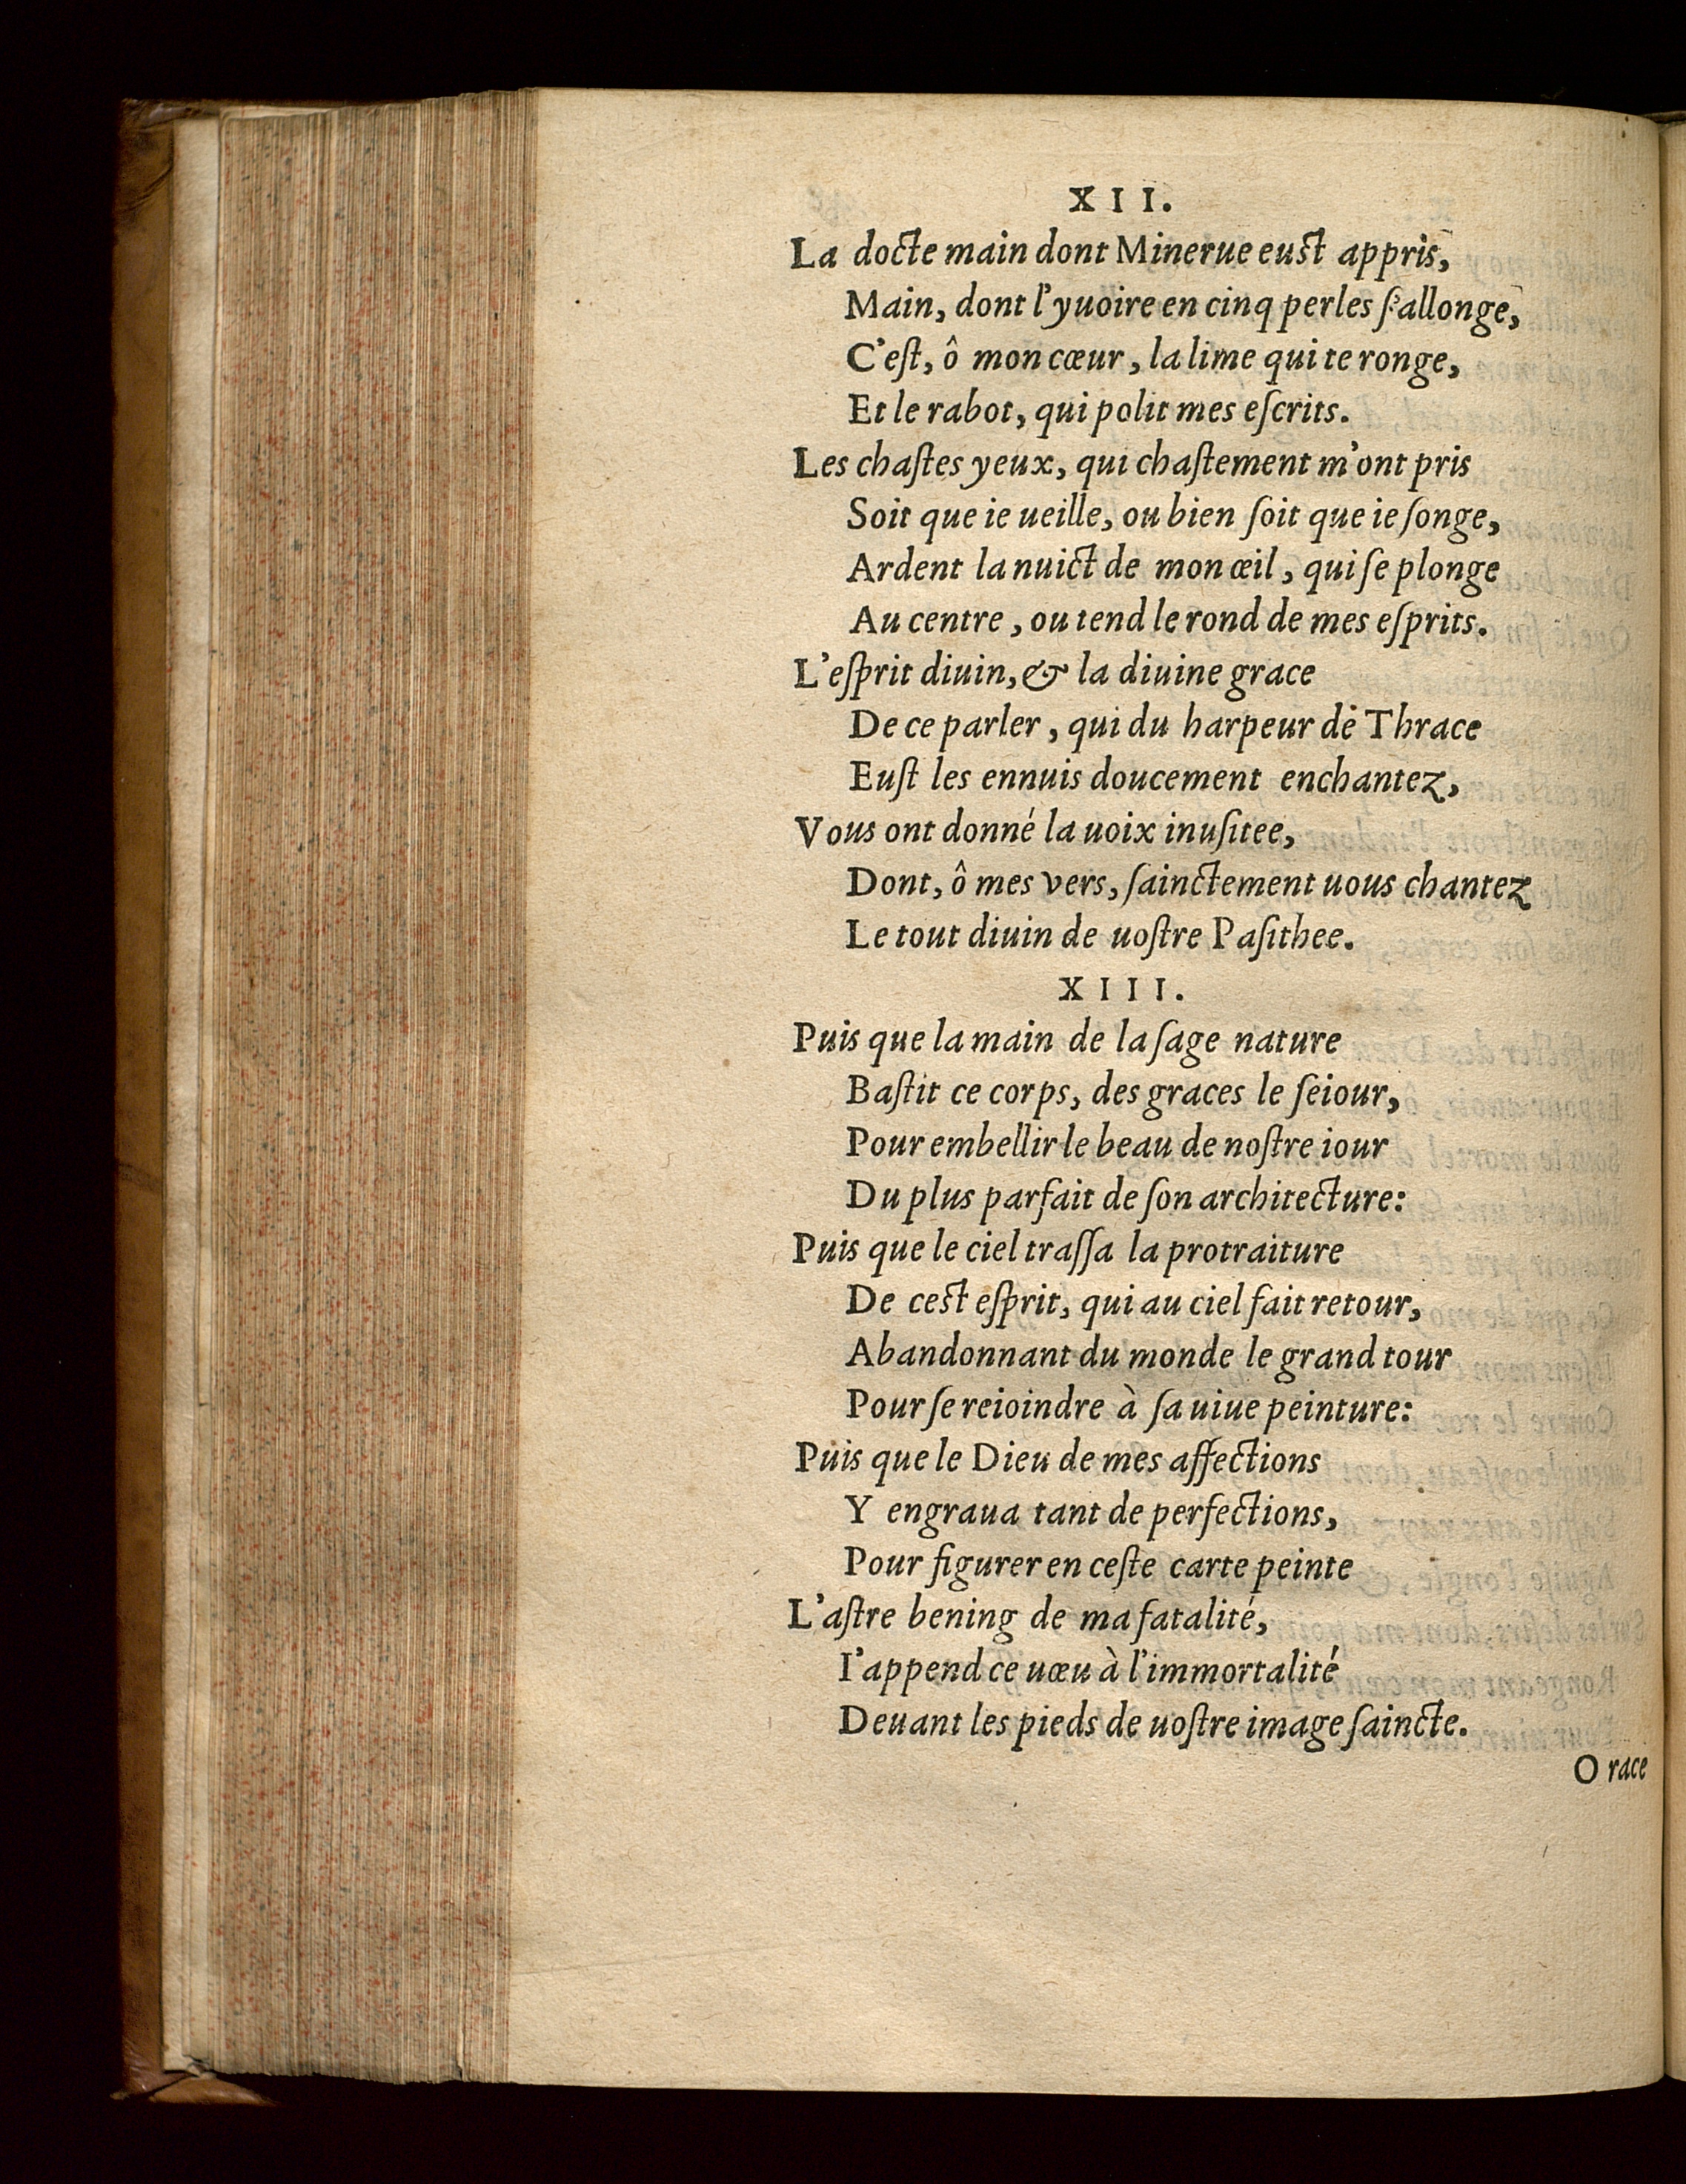 XII.
La docte main dont Minerue eust appris,
Main, dont l'yuoire en cinq perles ſ'allonge,
C'eſt, ô mon cœur, la lime qui te ronge,
Et le rabot, qui polit mes eſcrits.
Les chaſtes yeux, qui chaſtement m'ont pris
Soit que ie ueille, ou bien ſoit que ie ſonge,
Ardent la nuict de mon œil, qui ſe plonge
Au centre, ou tend le rond de mes eſprits.
L'eſprit diuin, & la diuine grace
De ce parler, qui du harpeur de Thrace
Euſt les ennuis doucement enchantez,
Vous ont donné la uoix inuſitee,
Dont, ô mes vers, ſainctement uous chantez
Le tout diuin de uoſtre Paſithee.
XIII.
Puis que la main de la ſage nature
Baſtit ce corps, des graces le ſeiour,
Pour embellir le beau de noſtre iour
Du plus parfait de ſon architecture:
Puis que le ciel traſſa la protraiture
De cest eſprit, qui au ciel fait retour,
Abandonnant du monde le grand tour
Pour ſe reioindre à ſa uiue peinture:
Puis que le Dieu de mes affections
Y engraua tant de perfections,
Pour figurer en ceſte carte peinte
L'aſtre bening de ma fatalité,
I'append ce uœu à l'immortalité
Deuant les pieds de uoſtre image ſaincte.
O race